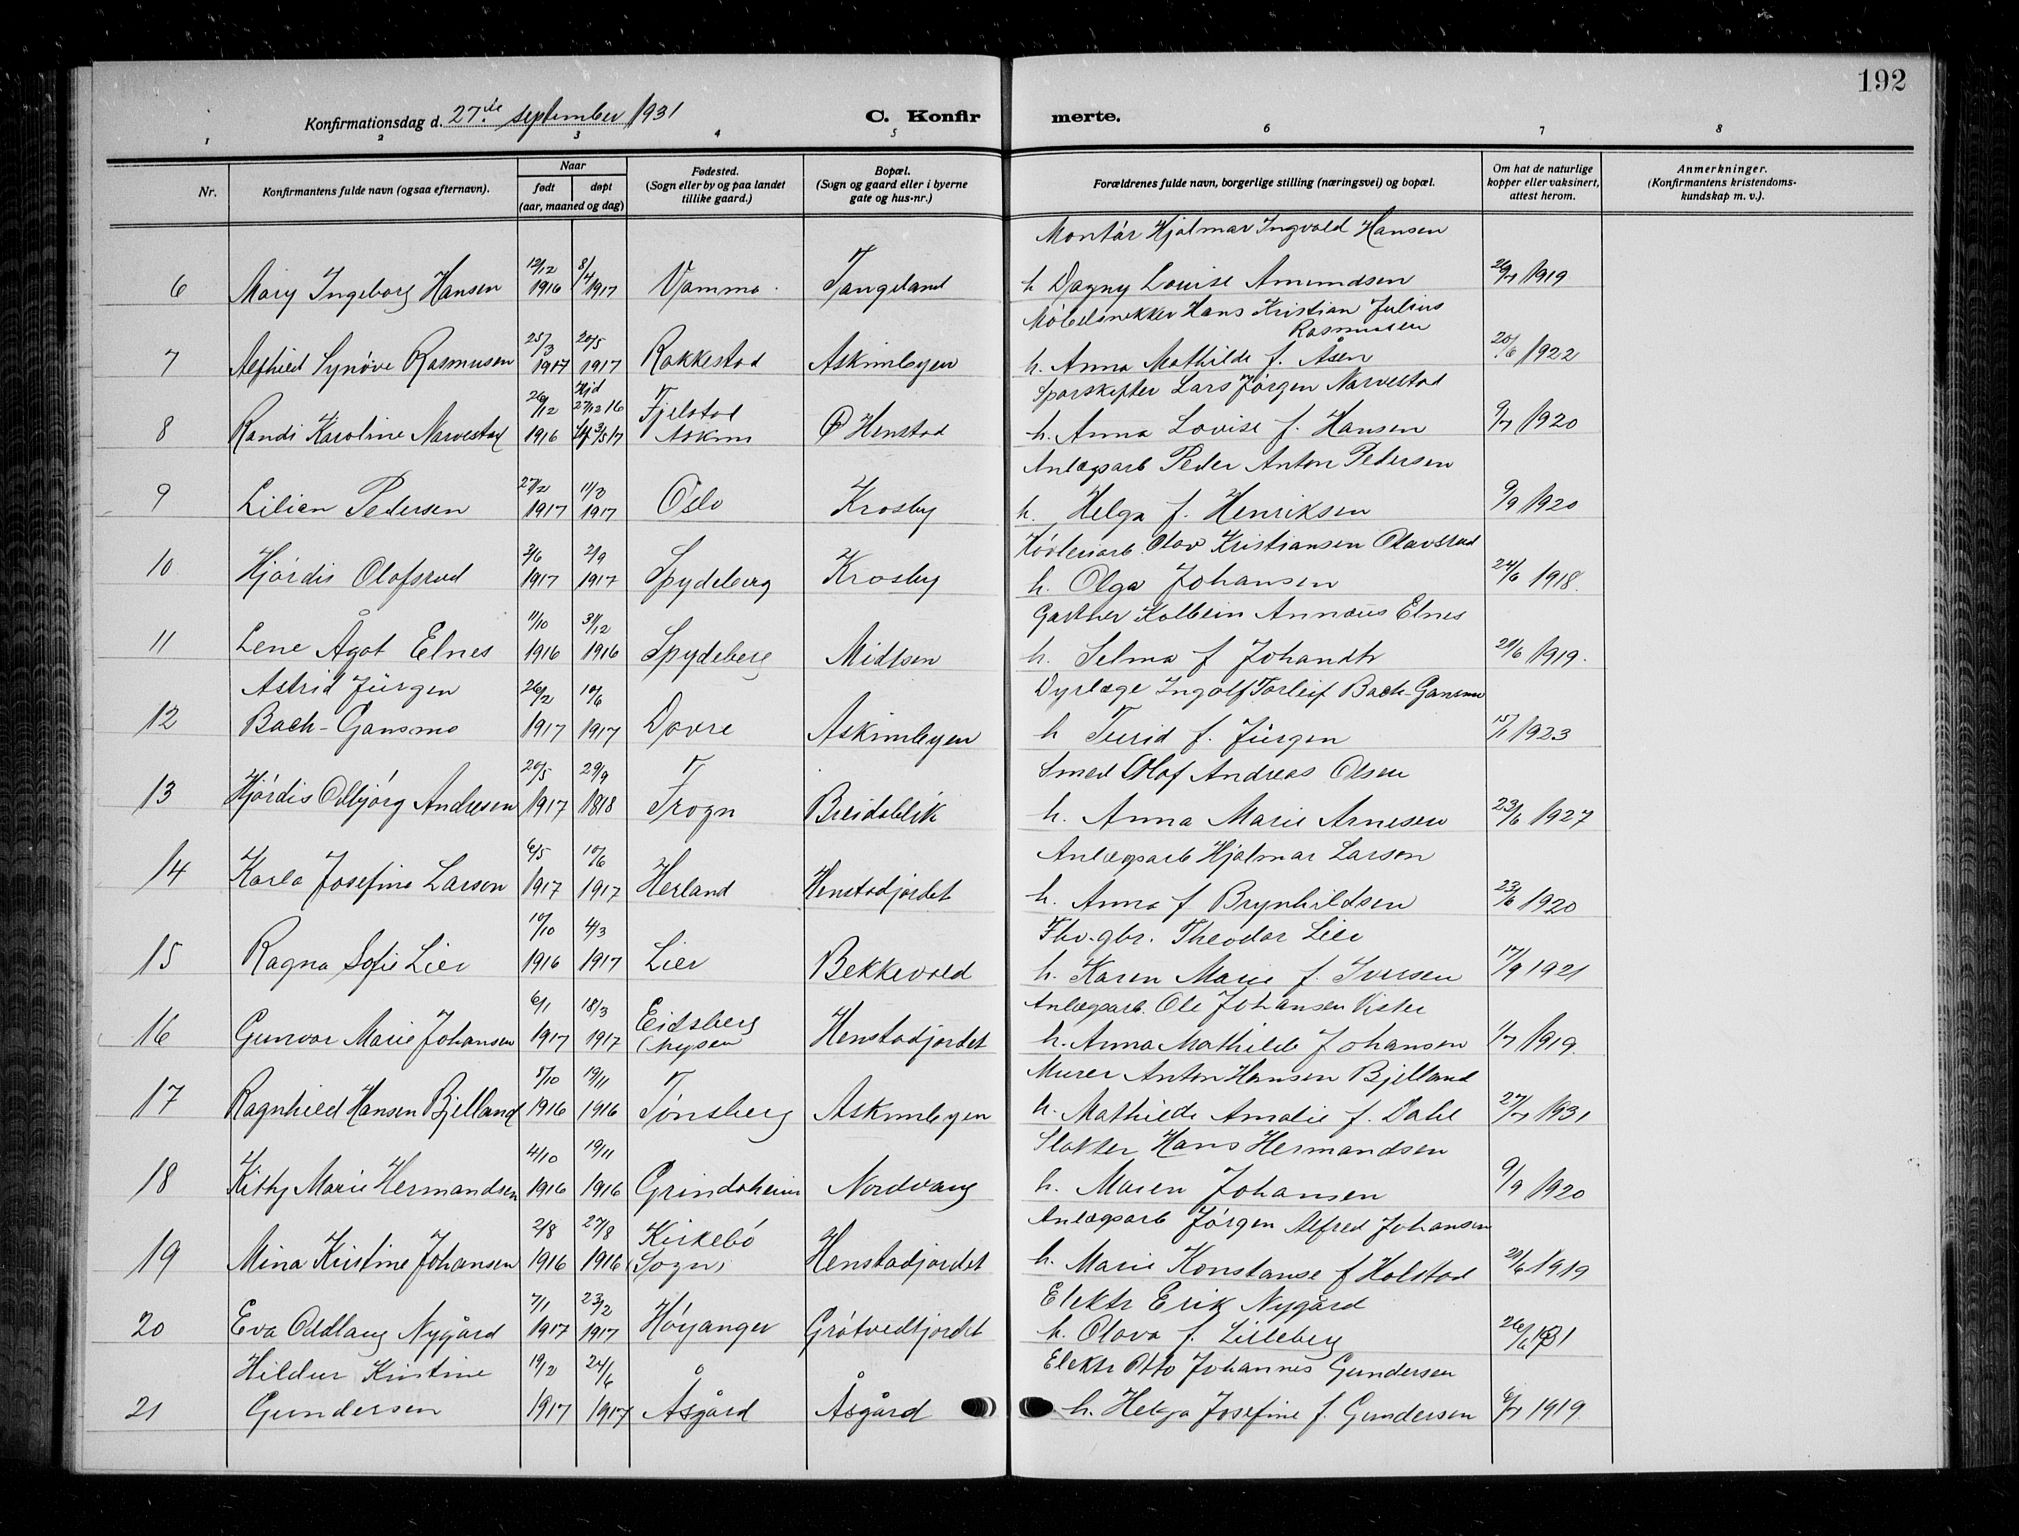 192
Konfirmationsdag d. 27de september 1931 C. Konfirmerte.
1 2 3 4 5 6 7 8
Nr. Konfirmantens fulde navn (ogsaa efternavn). Naar født døpt (aar, maaned og dag) Fødested. (Sogn eller by og paa landet tillike gaard.) Bopæl. (Sogn og gaard eller i byerne gate og hus-nr.) Forældrenes fulde navn, borgerlige stilling (næringsvei) og bopæl. Om hat de naturlige kopper eller vaksinert, attest herom. Anmerkninger. (Konfirmantens kristendoms-kundskap m. v.).
Montør Hjalmar Ingvald Hansen
6 Mary Ingeborg Hansen 12/12 1916 8/4 1917 Vamma Tangeland h Dagny Louise Amundsen 26/7 1919
Møbelsnekker Hans Kristian Julius Rasmussen
7 Alfhild Synøve Rasmusen 25/3 1917 20/5 1917 Rakkestad Askimbyen h. Anna Mathilde f. Åsen 20/6 1922
Lars Jørgen Narvestad
8 Randi Karoline Narvestad 26/12 1916 Hjd 27/12 16 3/5 17 Fjelstad Askim Ø Henstad h. Anna Lovise f. Hansen 9/7 1920
Anlægsarb Peder Anton Pedersen
9 Lilian Pedersen 27/2 1917 11/3 1917 Oslo Krosby h. Helga f. Henriksen 9/9 1920
Olav Kristiansen Olavsrud
10 Hjørdis Olafsrud 3/6 1917 2/9 1917 Spydeberg Krosby h. Olga Johansen 24/6 1918.
Gartner Kolbein Annæus Elnes
11 Lene Ågot Elnes 11/10 1916 31/12 1916 Spydeberg Midtsen h. Selma f Johandtr 21/6 1919.
Astrid Jürgen 26/2 10/6 Dyrlæge Ingolf Torleif Bach-Gansmo
12 Bach-Gansmo 1917 1917 Dovre Askimbyen h Turid f. Jürgen 15/1 1923
Smed Olaf Andreas Olsen
13 Hjørdis Odbjørg Andresen 20/5 1917 29/9 1818 Frogn Breidablik h. Anna Marie Arnesen 23/6 1927
Anlægsarb Hjalmar Larson
14 Karla Josefine Larson 6/5 1917 10/6 1917 Herland Henstadjordet h. Anna f Brynhildsen 23/6 1920
Fhv. gbr. Theodor Lier
15 Ragna Sofie Lier 10/10 1916 4/3 1917 Lier Bekkevold h. Karen Marie f. Iversen 17/9 1921
Anlægsarb. Ole Johansen Vister
16 Gunvor Marie Johansen 6/1 1917 18/3 1917 Eidsberg (Mysen Henstadjordet h. Anna Mathilde Johansen 1/7 1919.
Murer Anton Hansen Bjelland
17 Ragnhild Hansen Bjelland 5/10 1916 19/11 1916 Tønsberg Askimbyen h. Mathilde Amalie f. Dahl 27/7 1931
Slakter Hans Hermandsen
18 Kitty Marie Hermandsen 4/10 1916 19/11 1916 Grindaheim Nordvang h. Maren Johansen 9/9 1920
Anlægsarb Jørgen Alfred Johansen
19 Mina Kristine Johansen 2/8 1916 27/8 1916 Kirkebö Sogn, Henstadjordet h. Marie Konstanse f Holstad 21/6 1919
Elektr Erik Nygård
20 Eva Oddlaug Nygård 7/1 1917 23/2 1917 Høyanger Grøtvedtjordet h. Olava f. Lilleberg 26/6 1931
Hildur Kristine 19/2 24/6 Elektr Otto Johannes Gundersen
21 Gundersen 1917 1917 Åsgård Åsgård h. Helga Josefine f. Gundersen 6/7 1919.